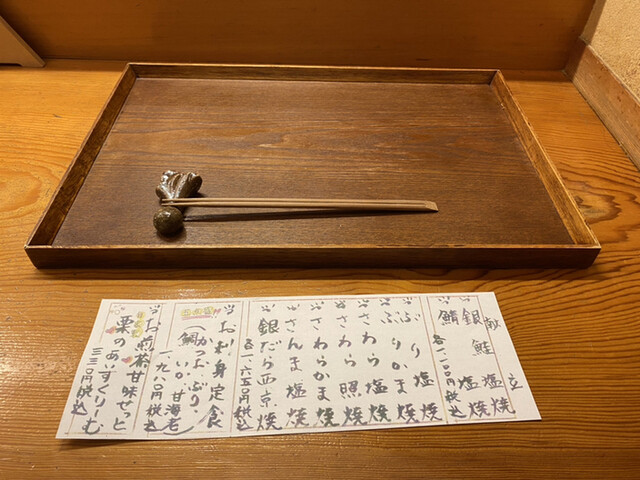 献立
銀鮭塩焼
鯖塩焼
各一、二〇〇円税込
ぶり塩焼
ぶりかま塩焼
さわら塩焼
さわら照焼
さわらかま塩焼
さんま塩焼
銀だら西京焼
各一、六五〇円税込
お刺身定食
(かつお、ぶり、
鯛、いか、甘海老)
一、九八〇円税込
お煎茶甘味せっと
栗のあいすくりーむ
三三〇円税込